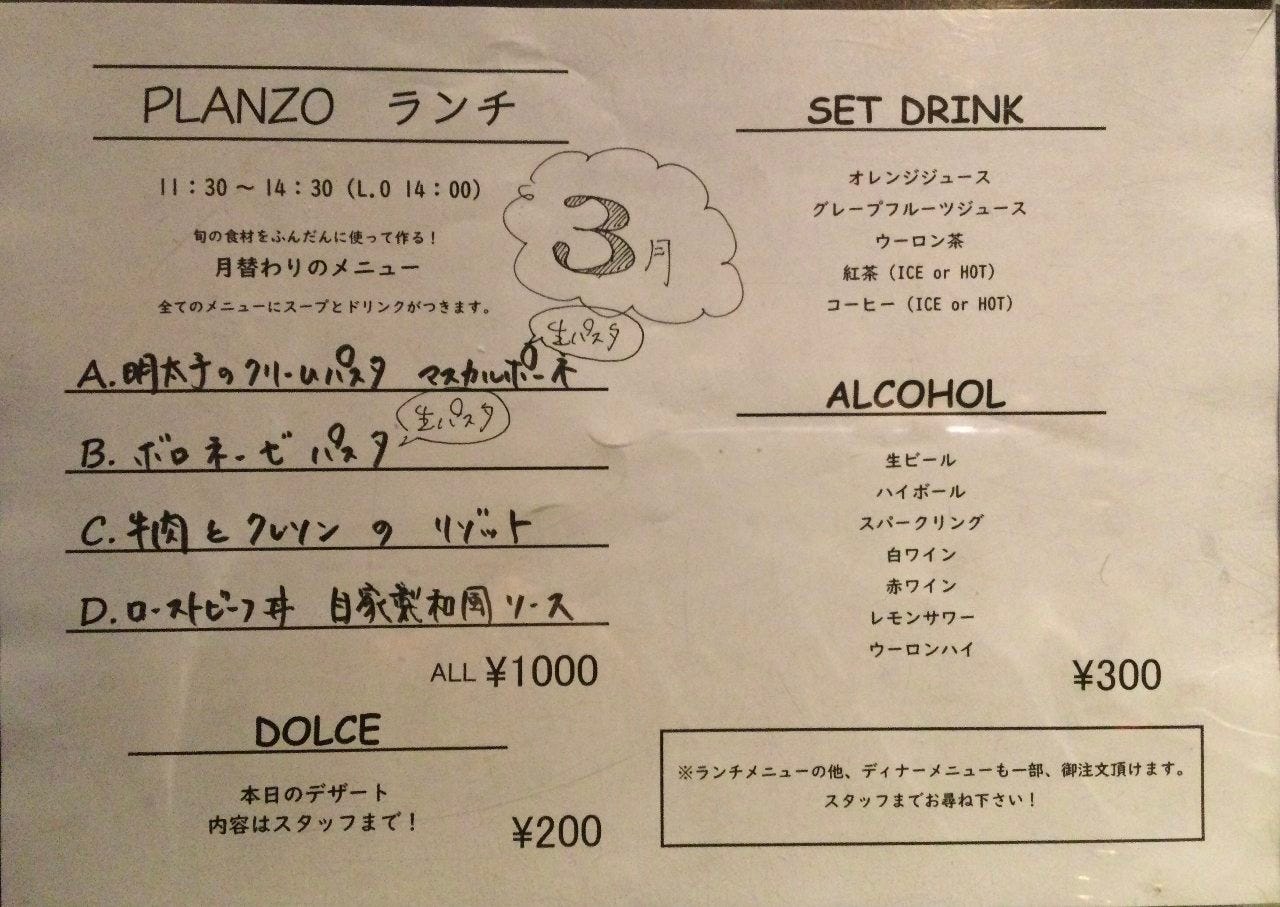 PLANZO ランチ
11：30～14：30（L.O 14：00）
旬の食材をふんだんに使って作る！
月替わりのメニュー
全てのメニューにスープとドリンクがつきます。
3月
生パスタ
A. 明太子のクリームパスタ マスカルポーネ
生パスタ
B. ボロネーゼ パスタ
C. 牛肉とクレソンのリゾット
D. ローストビーフ丼 自家製和風ソース
ALL ¥1000
DOLCE
本日のデザート
内容はスタッフまで！
¥200
SET DRINK
オレンジジュース
グレープフルーツジュース
ウーロン茶
紅茶（ICE or HOT）
コーヒー（ICE or HOT）
ALCOHOL
生ビール
ハイボール
スパークリング
白ワイン
赤ワイン
レモンサワー
ウーロンハイ
¥300
※ランチメニューの他、ディナーメニューも一部、御注文頂けます。
スタッフまでお尋ね下さい！